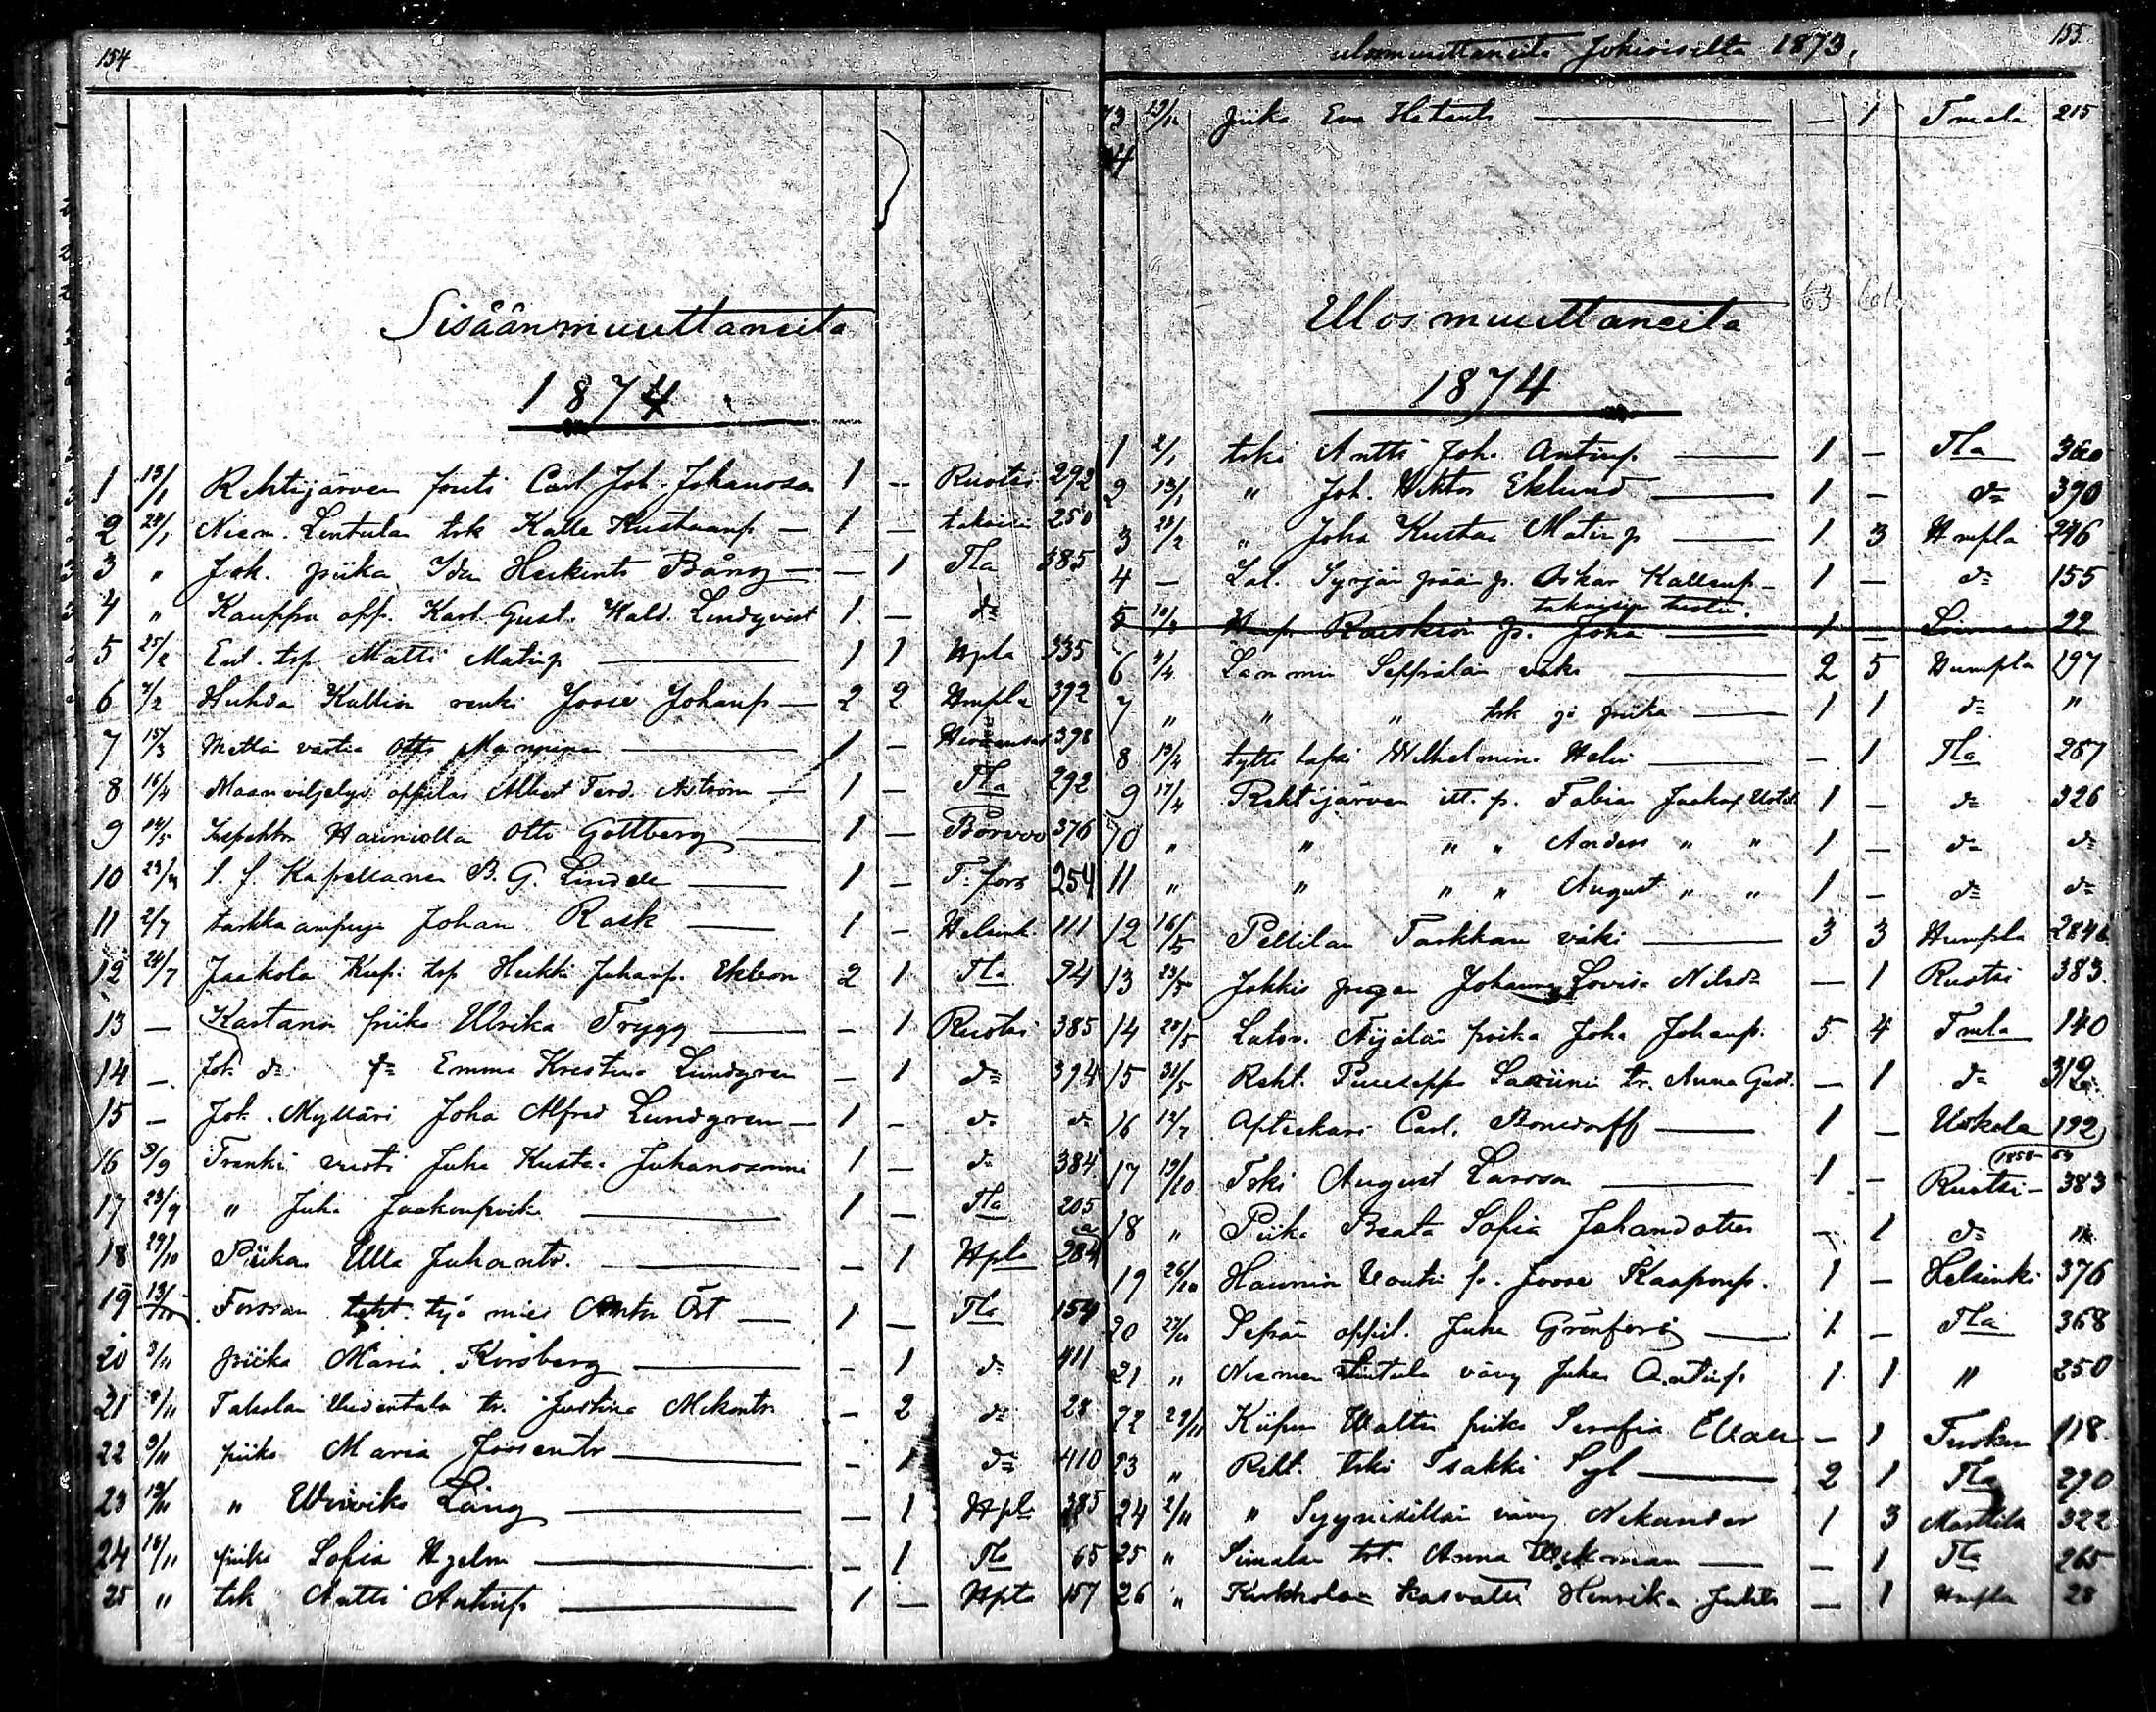 154
Sisäänmuuttaneita
1874
1 13/1 Rehtijärven fouti Carl Joh. Johansson 1 — Ruotsi 292
2 23/1 Niem. Lintulan trk Kalle Kustaanp — 1 — takaisin 250
3 " Jok. piika Ida Heikints Bång — — 1 Tla 385
4 " Kauppa opp. Karl Gust. Wald. Lindqvist 1 — d=
5 25/2 Erl. tsp Matti Matinp — 1 1 Hpla 335
6 7/2 Huhda Kallion renki Joose Johanp — 2 2 Hmpla 392
7 15/3 Mettä vartia Otto Manninen — 1 — 398
8 16/4 Maanviljelys oppilas Albert Ferd. Aström — 1 — Tla 292
9 14/5 Inspehtor Hauniolla Otto Gottberg — 1 — Borvoo 376
10 23/4 v. t. Kapellanen B. G. Lindell — 1 — T:fors 254
11 2/7 tarkka ampuja Johan Rask — 1 — Helsink. 111
12 24/7 Jaakola Kup. tsp Heikki Juhanp. Eklson 2 1 Tla 94
13 — Kartanon piika Ulrika Trygg — — 1 Ruotsi 385
14 — Jok d= d= Emma Kristina Lundgren — 1 d= 394
15 — Jok. Mylläri Joha Alfred Lundgren — 1 — d= d=
16 3/9 Trenki vuoti Juha Kustaa Juhanossonni 1 — d= 384
17 23/9 " Juha Jaakonpoika — 1 — Tla 205
18 29/10 Piika Ulla Juhantr. — — 1 Hpla 284
19 13/10 Forssan teht. työ mies Anton Öst — 1 — Tla 154
20 3/11 piika Maria Korsberg — — 1 d= 411
21 3/11 Talsolan Uudentalo tr. Justina Mikontr. — 2 d= 28
22 3/11 piika Maria Joosentr — — 1 d= 410
23 12/11 " Lång — — 1 Hpla 385
24 18/11 piika Sofia Hjelm — — 1 Tla 65
25 " trk Antti Antinp — 1 — Hpla 157
ulosmuuttaneita Jokioiselta 1873. 155
73 13/12 piika Eva Hetants — — 1 Tmela 215
74
Ulosmuuttaneita 63
1874
1 2/1 trki Antti Joh. Antinp. — 1 — Tla 360
2 13/1 " Joh. Viktor Eklund — 1 — d= 390
3 23/2 " Joha Kustaa Matinp — 1 3 Hmpla 296
4 — Lat. Syrjän pään p. Oskar Kallenp — 1 — d= 155
takaisin tuotu.
5 10/3 p. Joha — 1 — 22
6 4/4 Lammin Seppälän väki — 2 5 Humpla 197
7 " " " trk ja piika — 1 1 d= "
8 13/4 tyttö lapsi Wilhelmina Helin — — 1 Tla 287
9 17/4 Rehtijärven itt. p. Fabian Jaakop Uotil 1 — d= 326
10 " " " " Anders " " 1 — d= d=
11 " " " " August " " 1 — d= d=
12 16/5 Pellilan Tarkkan väki — 3 3 Humpla 284b
13 23/5 Jokkis pigan Johanna Lovisa Nilsd= — 1 Ruotsi 383.
14 28/5 Latov. Äijälän poika Joha Johanp. 5 4 Tmla 140
15 31/5 Reht. Puuseppä tr. Anna Gust. — 1 d= 312
16 13/7 Aptiekari Carl. Bonsdorff — 1 — Uskela 192
1858-63
17 13/10 Trki August Larsson — 1 — Ruotsi — 383
18 " Piika Beata Sofia Johandotter — 1 d= "
19 26/10 Haunion Vouti p. Joose Kaaponp. 1 — Helsinki 376
20 27/10 Sepän oppil. Juha Grönfors — 1 — Tla 368
21 " Niemen Lintula vävy Juha Antinp. 1 1 " 250
22 29/11 Kiipun Uotti piika Serafia Ellan — 1 118.
23 " Reht. trki Isakki Syl — 2 1 Tla 290
24 2/11 " Syynisillän vävy Nikander 1 3 Marttila 322
25 " Simalan trt. Anna Wekman — — 1 Tla 265
26 " kasvatti Henrika Juhts — 1 Hmpla 28